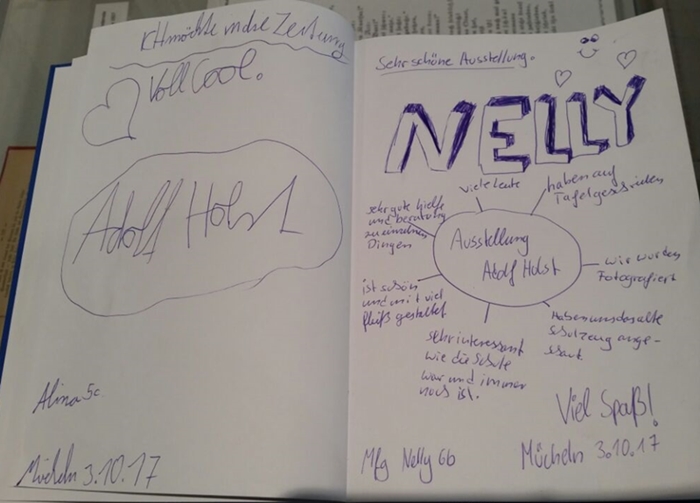 möchte in die Zeitung
Voll Cool.
Adolf Holst
Alina 5c
Mücheln 3.10.17
Sehr schöne Ausstellung.
NELLY
viele leute
haben auf
Tafel geschrieben
sehr gute hielfe
und beratung
zu einzelnen
Dingen
Ausstellung
Adolf Holst
wir wurden
Fotografiert
ist schön
und mit viel
fleiß gestaltet.
Haben uns das alte
schulzeug ange-
schaut
sehr interessant
wie die Schule
war und immer
noch ist.
Viel Spaß!
Mfg Nelly 6b
Mücheln 3.10.17